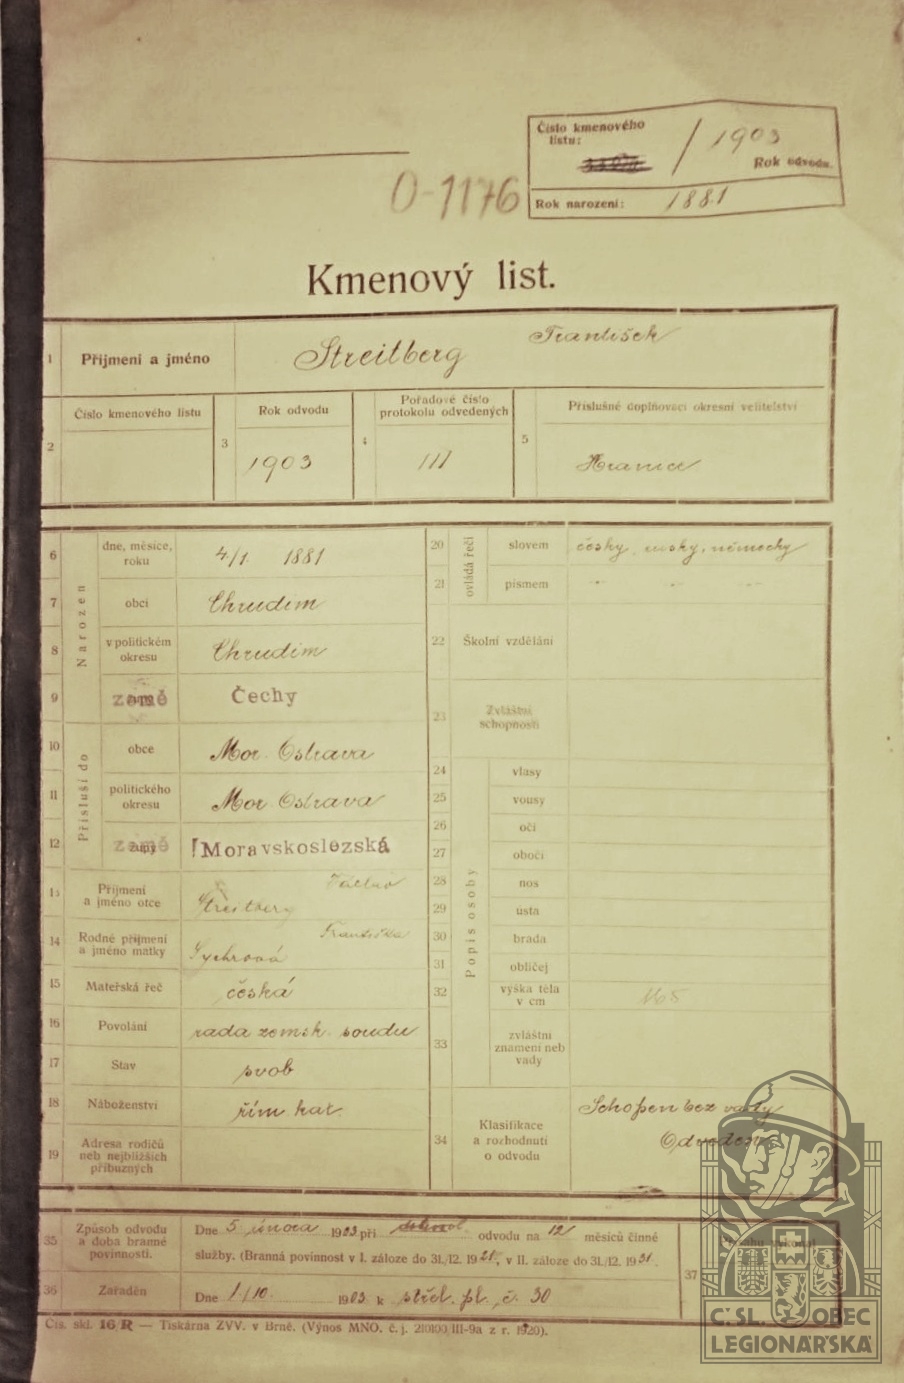 Číslo kmenového
listu:
/ 1903
Rok odvodu.
Rok narození: 1881
0-1176
Kmenový list.
1 Příjmení a jméno Streitberg František
2 Číslo kmenového listu
3 Rok odvodu 1903
4 Pořadové číslo protokolu odvedených 111
5 Příslušné doplňovací okresní velitelství Hranice
Narozen
6 dne, měsíce, roku 4/1. 1881
7 obci Chrudim
8 v politickém okresu Chrudim
9 země Čechy
Přísluší do
10 obce Mor. Ostrava
11 politického okresu Mor. Ostrava
12 země Moravskoslezská
13 Příjmení a jméno otce Streitberg Václav
14 Rodné příjmení a jméno matky Sychrová Františka
15 Mateřská řeč česká
16 Povolání rada zemsk. soudu
17 Stav svob
18 Náboženství řím. kat.
19 Adresa rodičů neb nejbližších příbuzných
ovládá řeči
20 slovem česky, rusky, německy
21 písmem " " "
22 Školní vzdělání
23 Zvláštní schopnosti
Popis osoby
24 vlasy
25 vousy
26 oči
27 obočí
28 nos
29 ústa
30 brada
31 obličej
32 výška těla v cm 165
33 zvláštní znamení neb vady
34 Klasifikace a rozhodnutí o odvodu Schopen bez vady
Odveden
35 Způsob odvodu a doba branné povinnosti. Dne 5. února 1903 při odvodu na 12 měsíců činné
služby. (Branná povinnost v I. záloze do 31./12. 1921, v II. záloze do 31./12. 1931.
36 Zařaděn Dne 1/10. 1903 k střel. pl. č. 30
37
Čís. skl. 16/R — Tiskárna ZVV. v Brně. (Výnos MNO. č. j. 210100/III-9a z r. 1920).
Č. SL. OBEC
LEGIONÁŘSKÁ